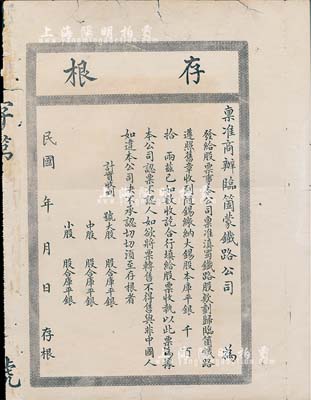 上海陽明拍賣
存根
稟准商辦臨箇蒙鐵路公司 為
發給股票事本公司稟准滇蜀鐵路股款劃歸臨箇鐵路
遵照舊章收到隨錫繳納大錫股本庫平銀 千 百
拾 兩茲已如數收訖合行填給股票收執以此票為據
本公司認票不認人如欲將票轉售不得售與非中國人
如違本公司決不承認切切須至存根者
計實收到 號大股 股合庫平銀
中股 股合庫平銀
小股 股合庫平銀
民國 年 月 日 存根
字第
號